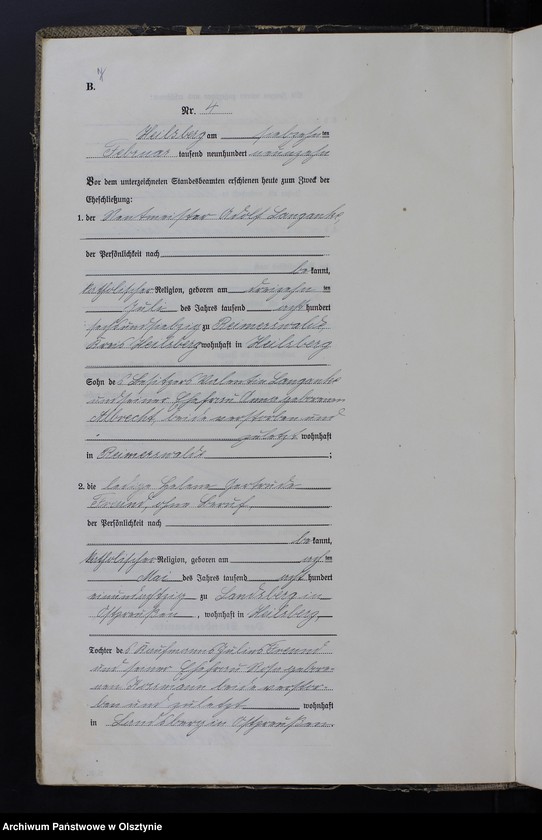 B.
Nr. 4
Heilsberg am siebzehnten
Februar tausend neunhundert neunzehn
Vor dem unterzeichneten Standesbeamten erschienen heute zum Zweck der
Eheschließung:
1. der Rentmeister Adolf Langanke,
der Persönlichkeit nach
bekannt,
katholischer Religion, geboren am dreizehnten
Juli des Jahres tausend achthundert
sechsundsiebzig zu Reimerswalde
Kreis Heilsberg wohnhaft in Heilsberg
Sohn des Besitzers Valentin Langanke
und seiner Ehefrau Anna geborenen
Albrecht, beide verstorben und
zuletzt wohnhaft
in Reimerswalde ;
2. die ledige Helene Gertrude
Freund, ohne Beruf,
der Persönlichkeit nach
bekannt,
katholischer Religion, geboren am achten
Mai des Jahres tausend achthundert
einundachtzig zu Landsberg in
Ostpreußen , wohnhaft in Heilsberg,
Tochter des Kaufmanns Julius Freund
und seiner Ehefrau Rosa gebore-
nen beide verstor-
ben und zuletzt wohnhaft
in Landsberg in Ostpreußen.
Archiwum Państwowe w Olsztynie